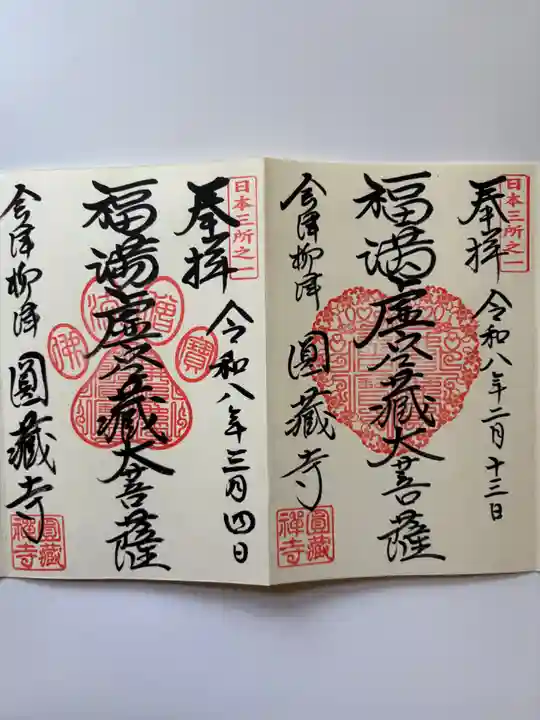 日本三所之一
奉拝
令和八年二月十三日
福満虚空藏大菩薩
会津柳津
圓藏寺
圓藏
禅寺
日本三所之一
奉拝
令和八年三月四日
福満虚空藏大菩薩
佛法僧寶
会津柳津
圓藏寺
圓藏
禅寺